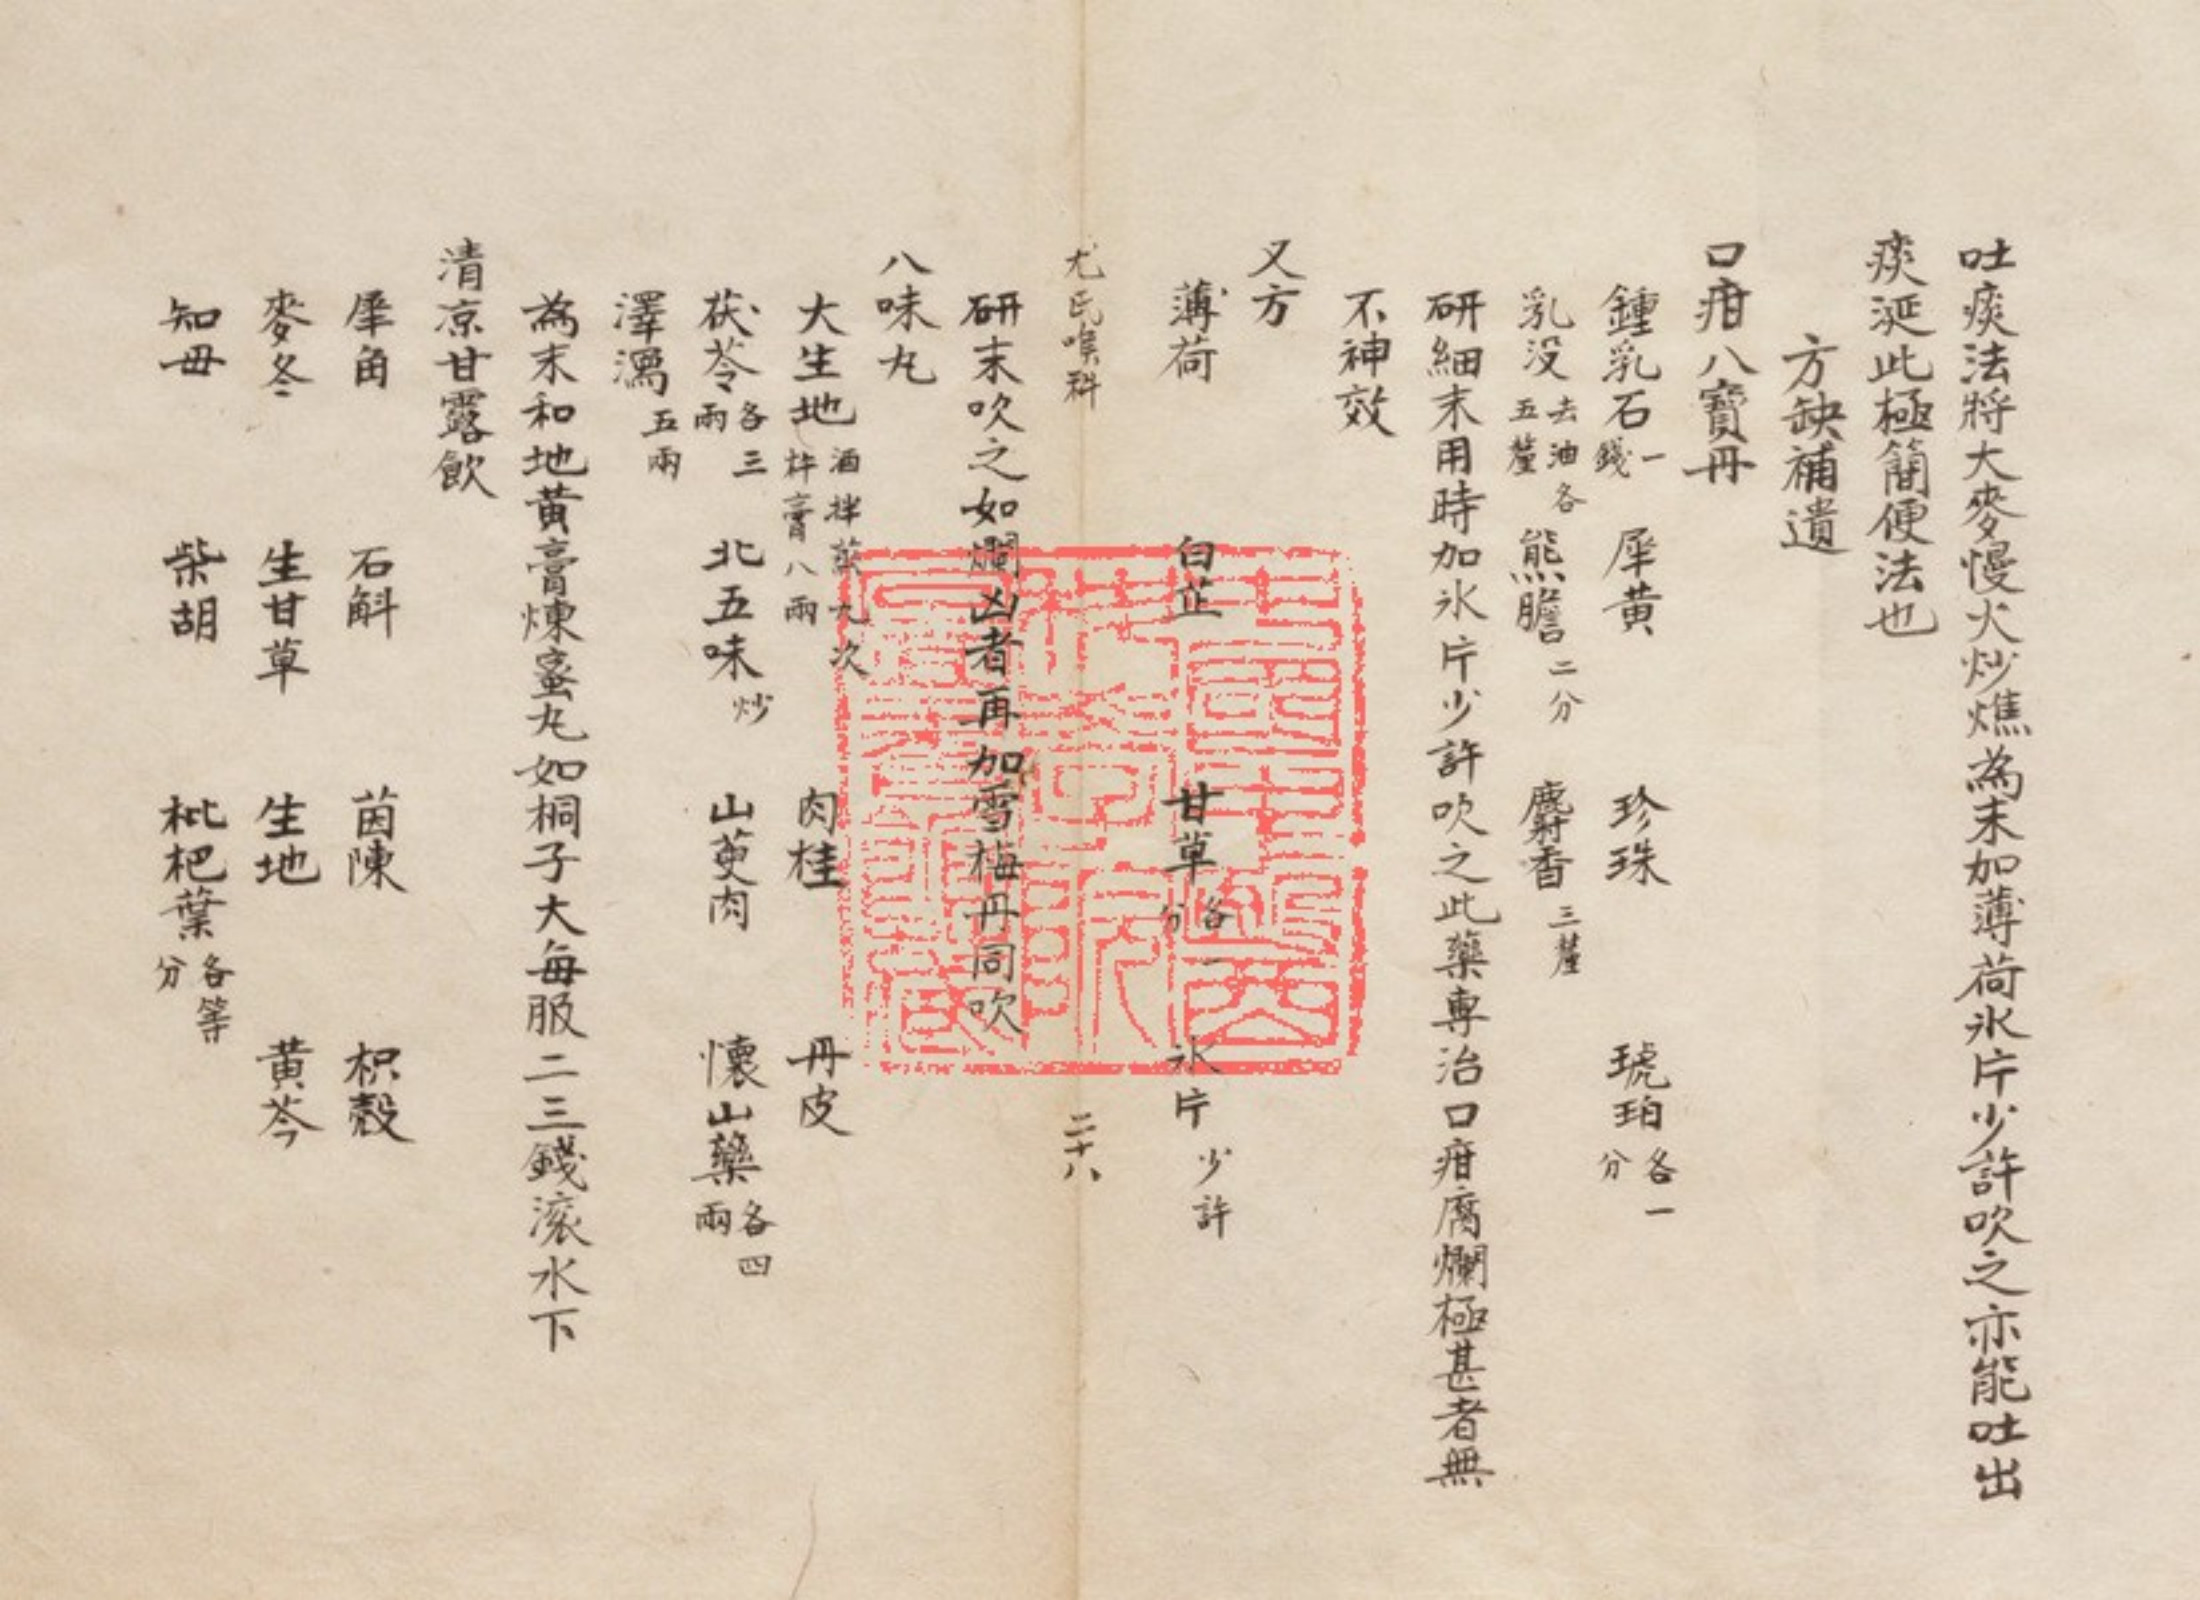 吐痰法將大麥慢火炒燋為末加薄荷氷片少許吹之亦能吐出
痰涎此極簡便法也
方缺補遺
口疳八寶丹
鍾乳石一錢 犀黃 珍珠 琥珀各一分
乳没去油各五釐 熊膽二分 麝香三釐
研細末用時加氷片少許吹之此藥專治口疳腐爛極甚者無
不神效
又方
薄荷 白芷 甘草各一分 氷片少許
尤氏喉科 二十八
研末吹之如爛凶者再加雪梅丹同吹
八味丸
大生地酒拌蒸九次杵膏八兩 肉桂 丹皮
茯苓各三兩 北五味炒 山萸肉 懷山藥各四兩
澤瀉五兩
為末和地黃膏煉蜜丸如桐子大每服二三錢滚水下
清凉甘露飲
犀角 石斛 茵陳 枳殼
麥冬 生甘草 生地 黃芩
知母 柴胡 枇杷葉各等分